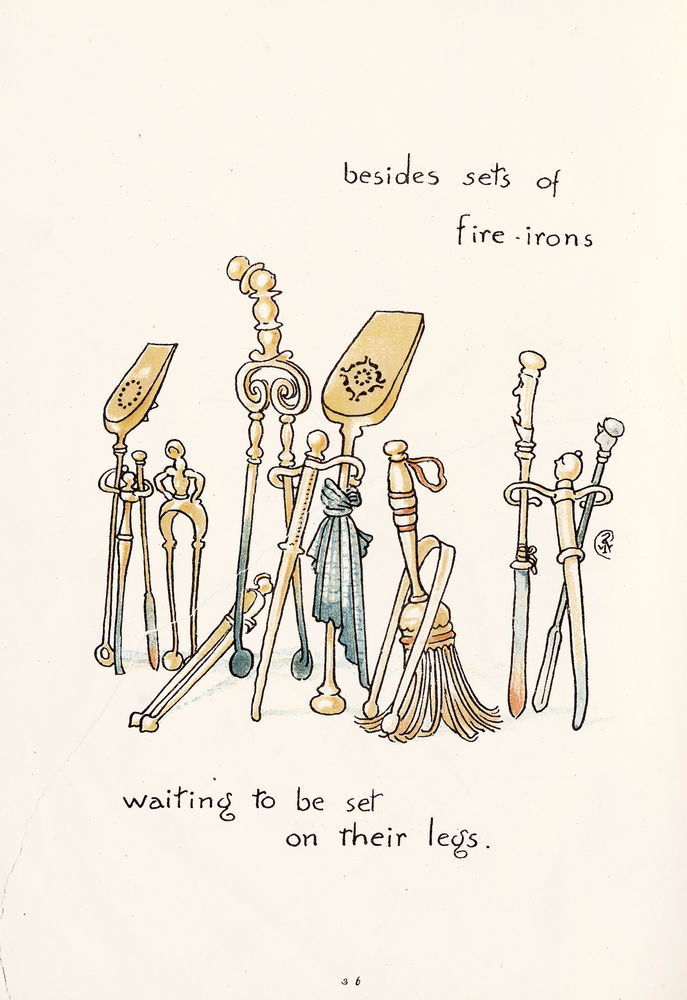 besides sets of
fire-irons
waiting to be set
on their legs.
36